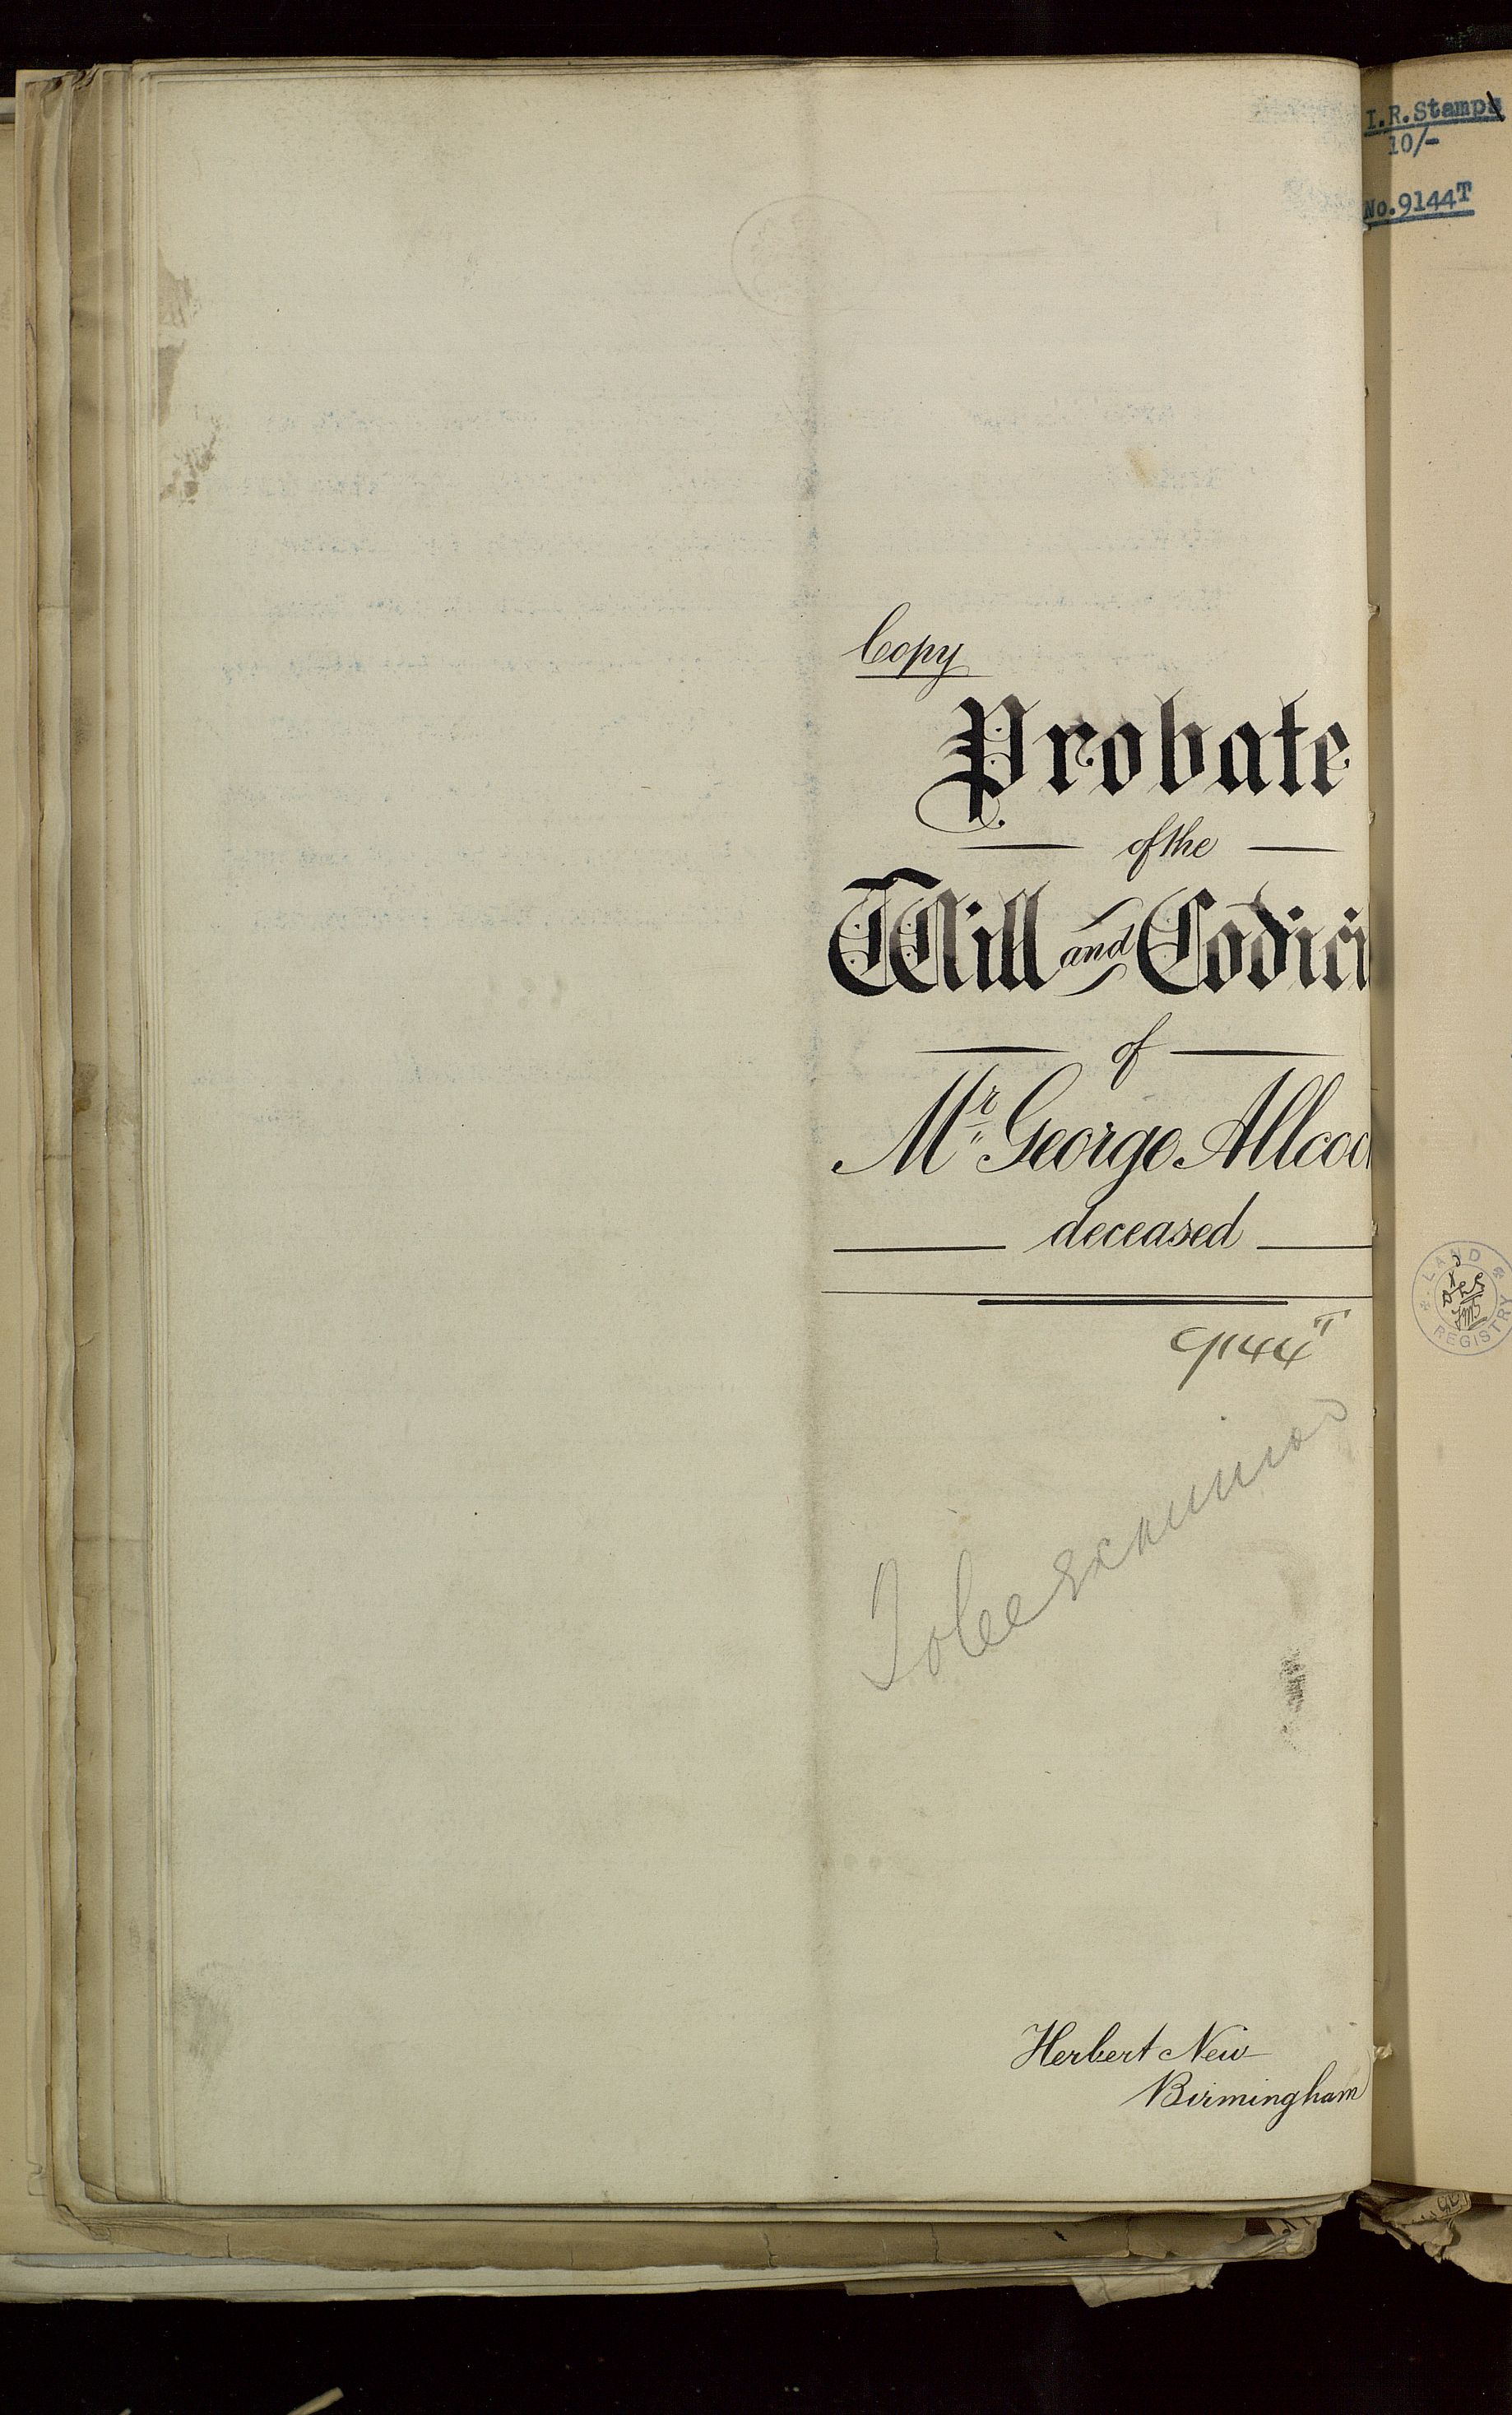 Copy
Probate
of the
Will and Codici
of
Mr. George Allcoc
deceased
9144T
To be examined
Herbert New
Birmingham
I.R.Stamps
10/-
No.9144T
LAND REGISTRY